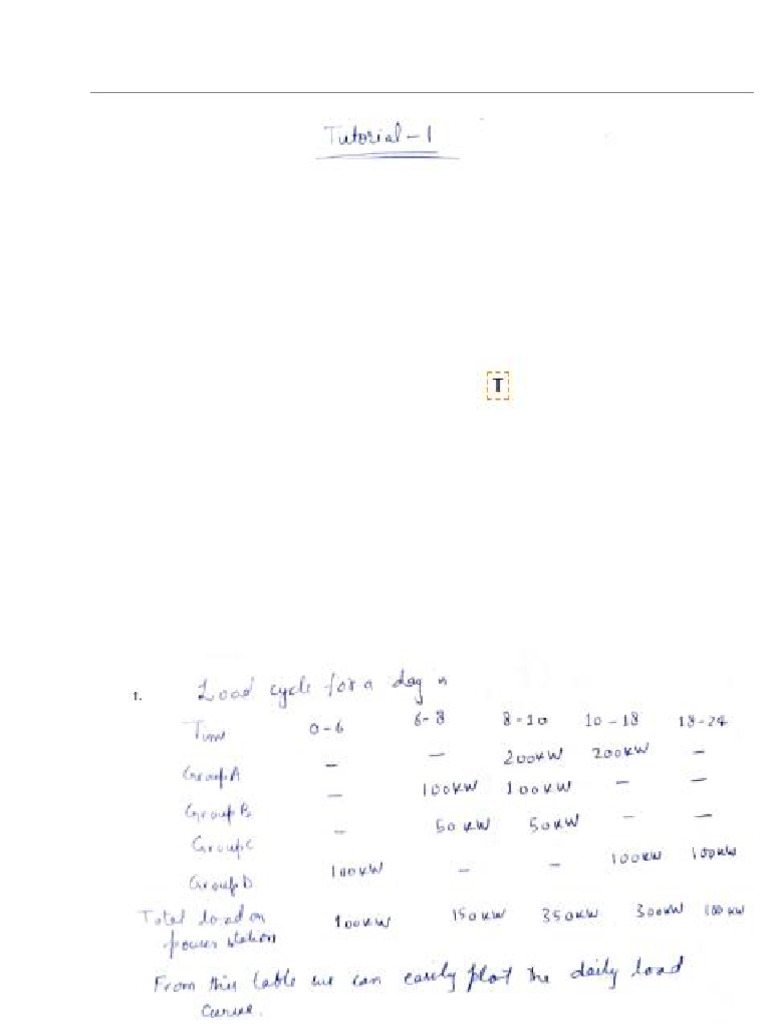 Tutorial-1
T
1. Load cycle for a day is
Time 0-6 6-8 8-10 10-18 18-24
Group A – – 200kW 200kW –
Group B – 100kW 100kW – –
Group C – 50kW 50kW – –
Group D 100kW – – 100kW 100kW
Total load on 100kW 150kW 350kW 300kW 100kW
power station
From this table we can easily plot the daily load
curve.